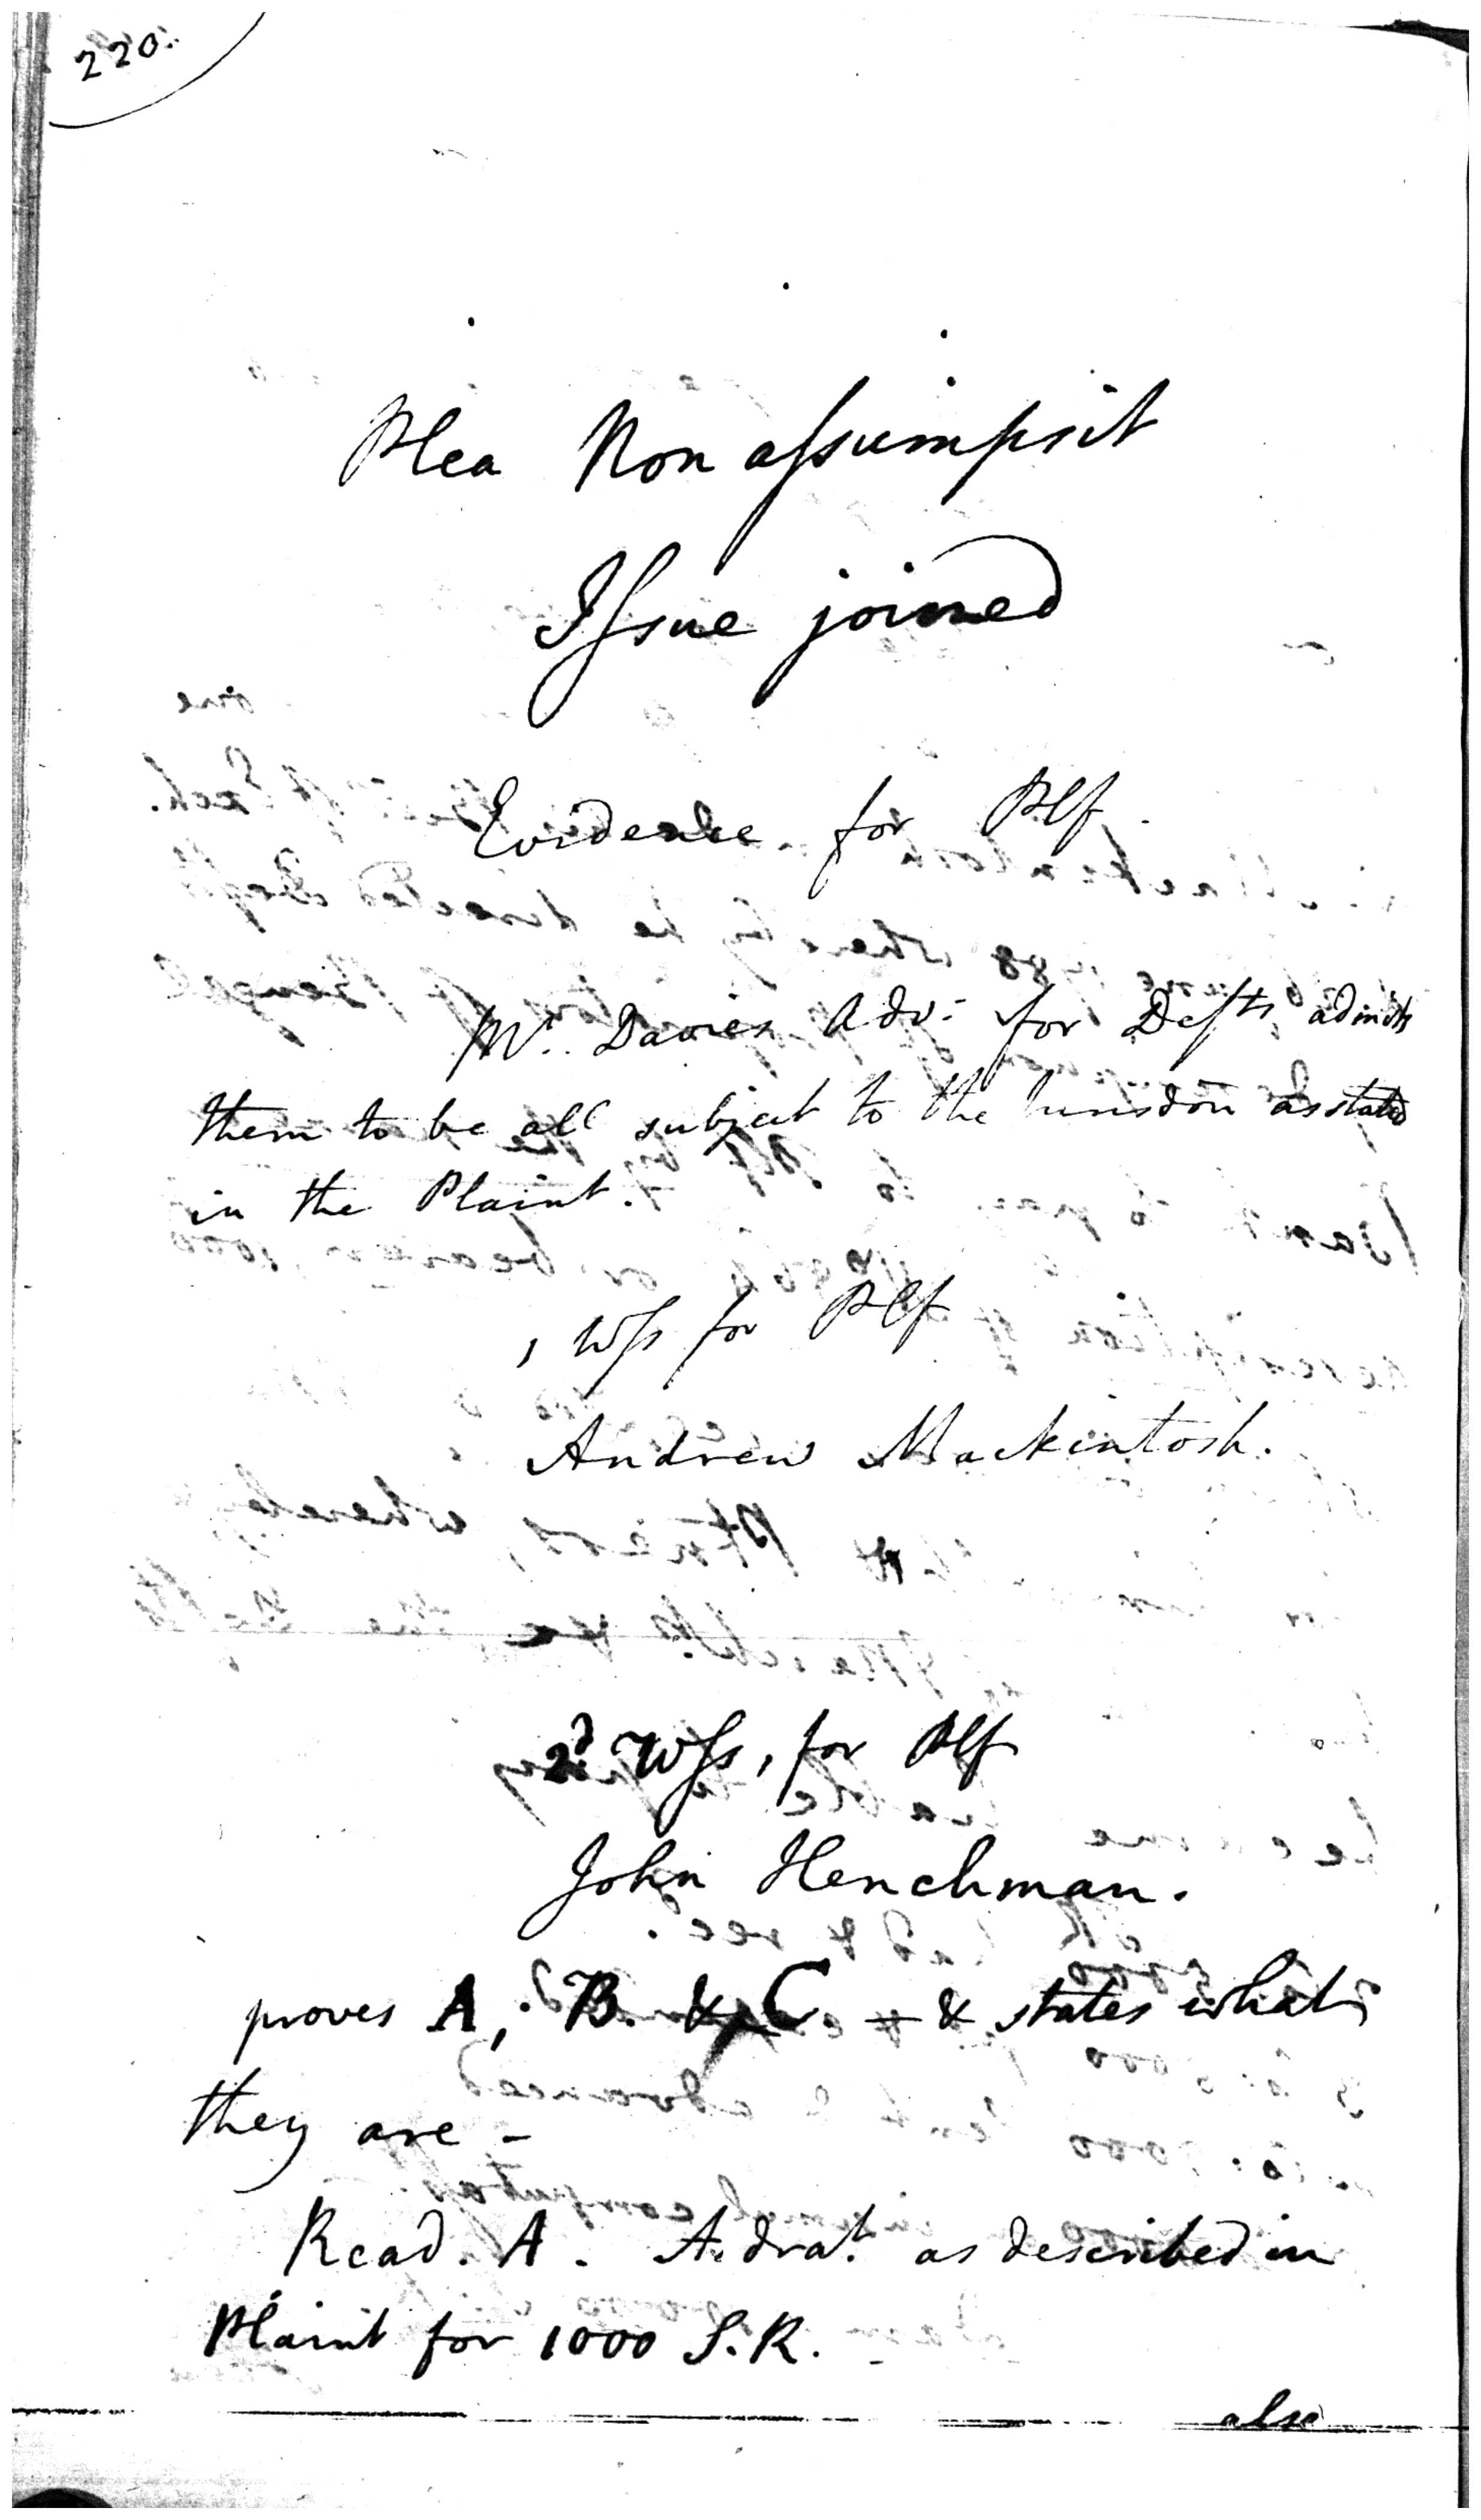 220.
Plea Non assumpsit
Issue joined
Evidence for Plf
Mr. Davies Adv. for Defts admits
them to be all subject to the Jurisdon as stated
in the Plaint.
1 Wss for Plf
Andrew Mackintosh.
2d Wss, for Plf
John Henchman.
proves A, B. & C. & states what
they are -
Read. A. A. drat. as described in
Plaint for 1000 S.R.
also